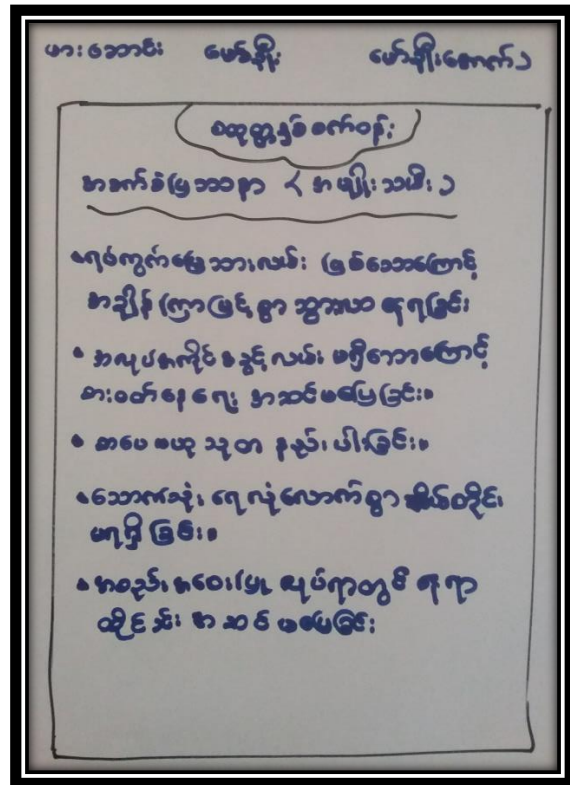 ဖားဆောင်း မော်ချီး မော်ချီးစောက်၁
စတုတ္ထနှစ်စက်ဝန်း
အခက်ခဲပြဿနာ (အမျိုးသမီး)
•ရပ်ကွက်မြေသားလမ်း ဖြစ်သောကြောင့်
အချိန်ကြာမြင့်စွာ သွားလာ နေရခြင်း
• အလုပ်အကိုင်အခွင့်လမ်း မရှိသောကြောင့်
စားဝတ်နေရေး အဆင်မပြေခြင်း။
• စာပေဗဟုသုတ နည်းပါးခြင်း။
•သောက်သုံးရေလုံလောက်စွာ အိမ်တိုင်း
မရရှိခြင်း။
• အစည်းအဝေးပြုလုပ်ရာတွင် နေရာ
ထိုင်ခင်း အဆင်မပြေခြင်း